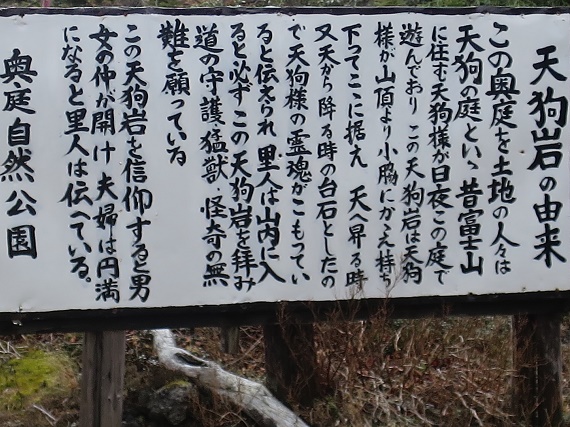 天狗岩の由来
この奥庭を土地の人々は
天狗の庭といゝ昔富士山
に住む天狗様が日夜この庭で
遊んでおり この天狗岩は天狗
様が山頂より小脇にかゝえ持ち
下ってここに据え 天へ昇る時
又天から降る時の台石としたの
で天狗様の霊魂がこもってい
ると伝えられ 里人は山内に入
ると必ずこの天狗岩を拝み
道の守護猛獣・怪奇の無
難を願っている
この天狗岩を信仰すると男
女の仲が開け 夫婦は円満
になると里人は伝へている。
奥庭自然公園